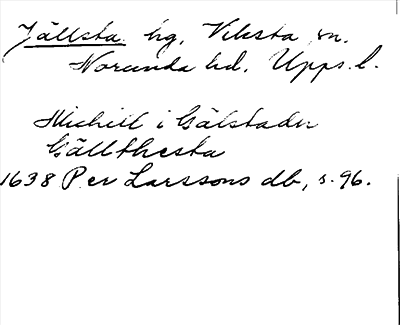 Jällsta hg, Viksta sn.
Norunda hd. Upps. l.
Michill i Gälstader
Gällthesta
1638 Per Larssons db, s. 96.